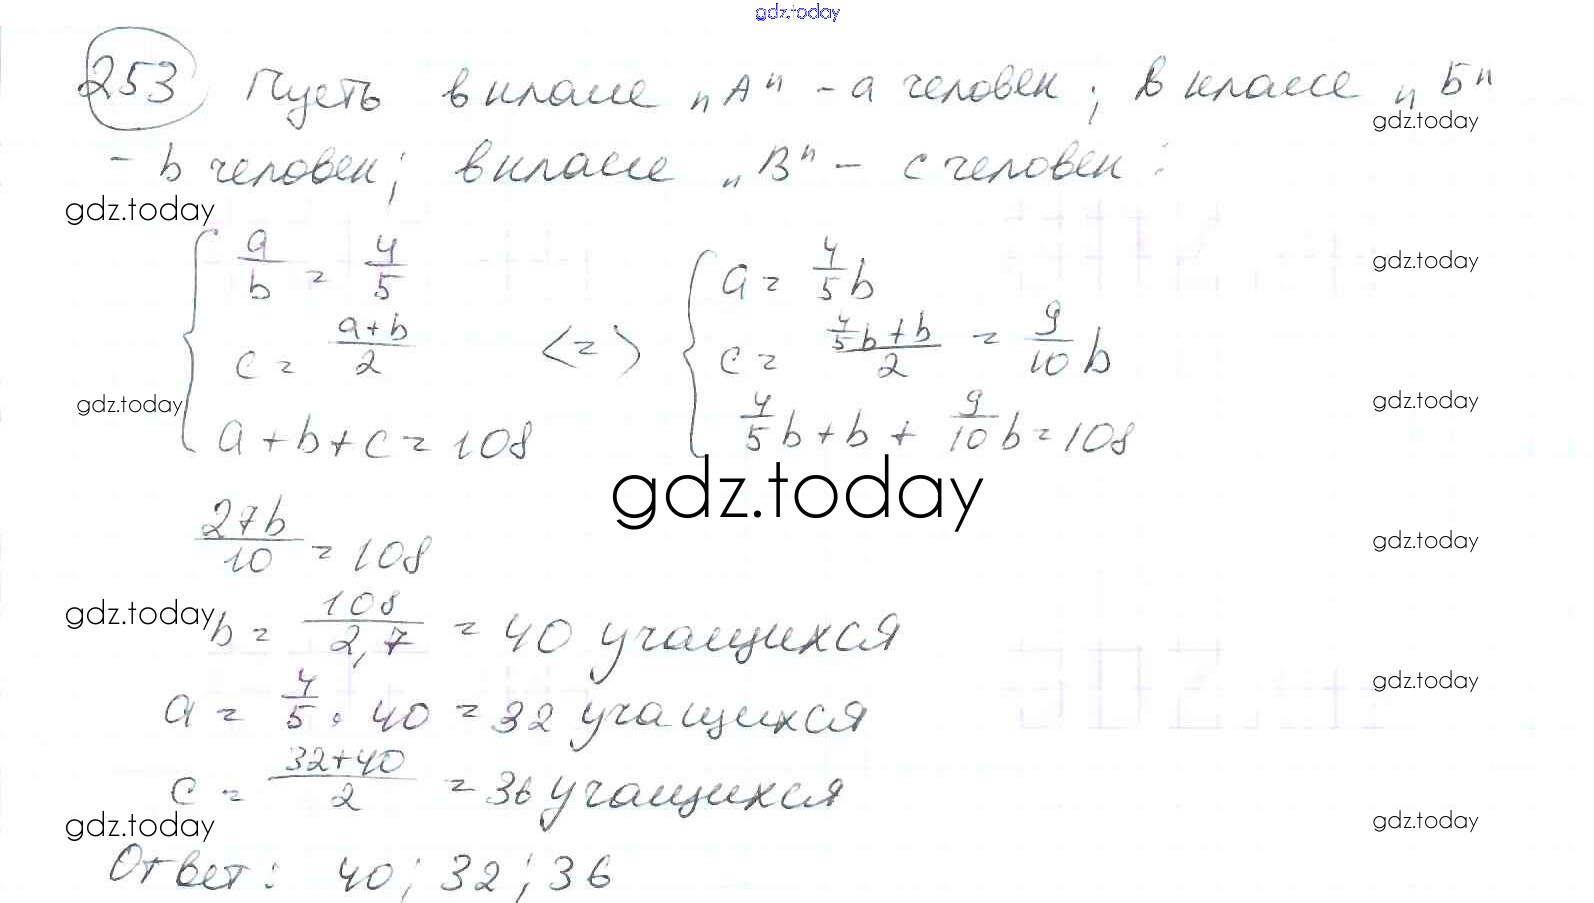 gdz.today
253 Пусть в классе „А" - a человек; в классе „Б"
gdz.today
- b человек; в классе „В" - c человек:
gdz.today
{ a/b = 4/5
c = (a+b)/2
a+b+c=108
<=>
{ a = 4/5 b
c = (4/5 b + b)/2 = 9/10 b
4/5 b + b + 9/10 b = 108
gdz.today
gdz.today
gdz.today
gdz.today
27b/10 = 108
gdz.today
gdz.today
b = 108/2,7 = 40 учащихся
gdz.today
a = 4/5 · 40 = 32 учащихся
c = (32+40)/2 = 36 учащихся
gdz.today
gdz.today
Ответ: 40; 32; 36